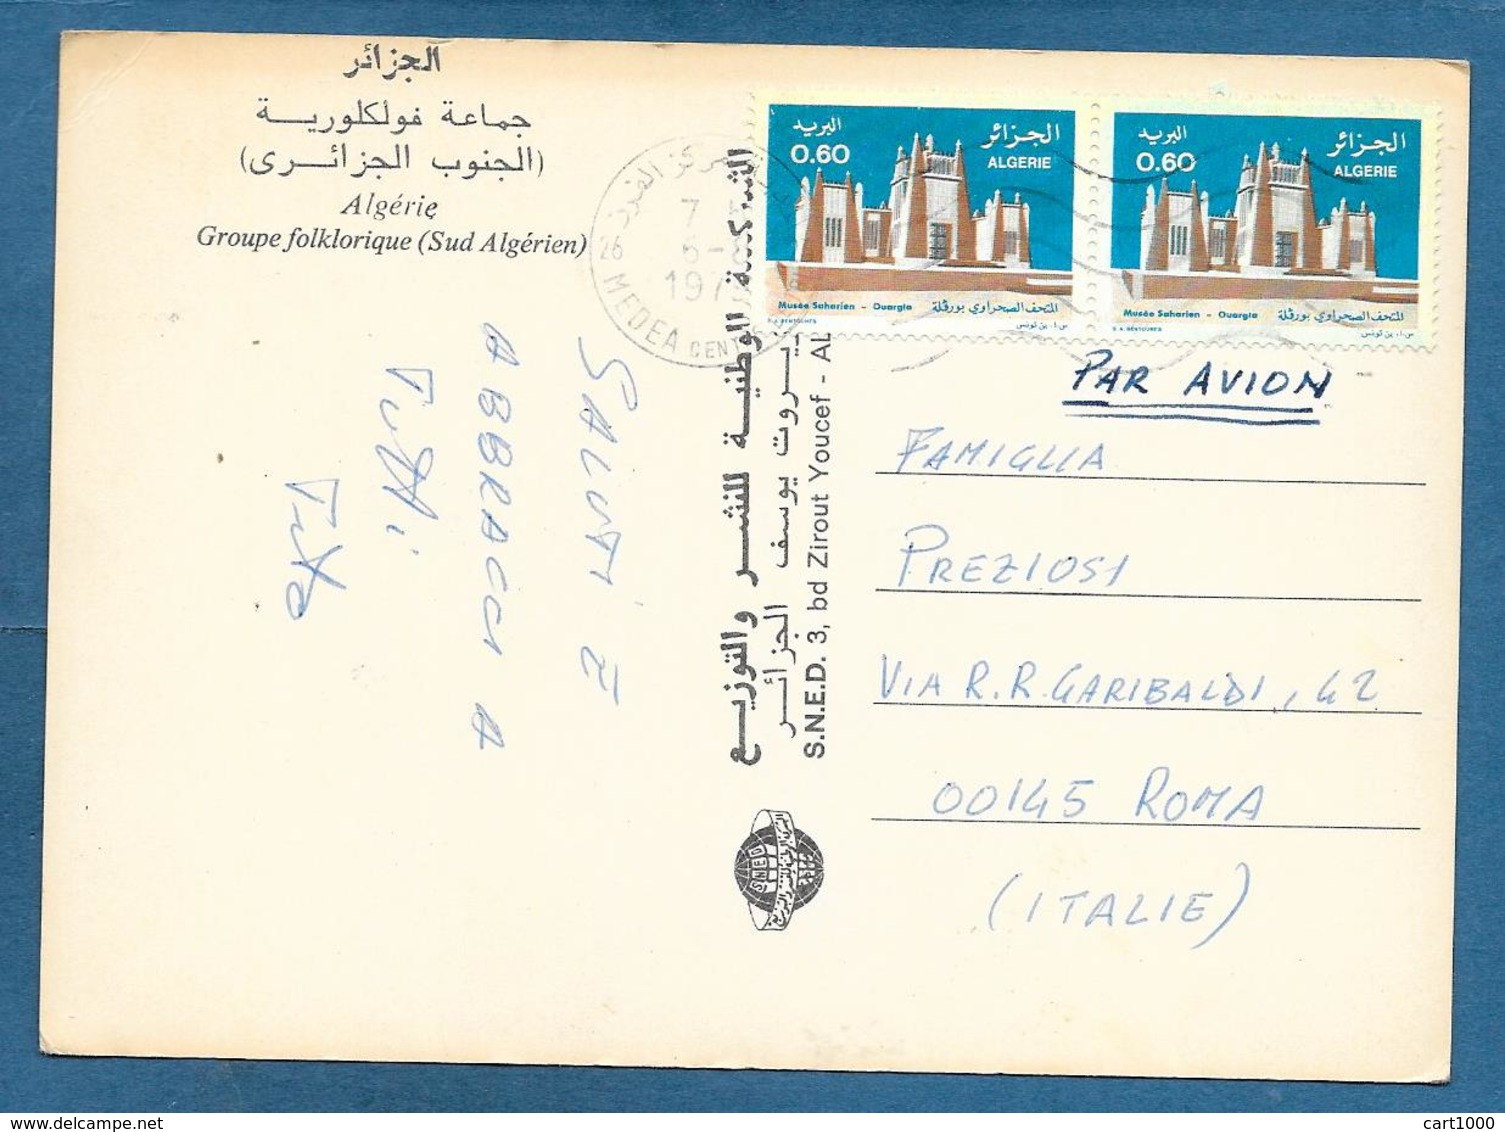 الجزائر
جماعة فولكلورية
(الجنوب الجزائرى)
Algérie
Groupe folklorique (Sud Algérien)
SALUTI E
ABBRACCI A
TUTTI
الشركة الوطنية للنشر والتوزيع
زيروت يوسف الجزائر
S.N.E.D. 3, bd Zirout Youcef - AL
S.N.E.D
مركز الفرز
26
7
197
MEDEA CENT
البريد
الجزائر
0.60
ALGERIE
Musée Saharien - Ouargla
المتحف الصحراوي بورقلة
S.A. BENTOUNES
س.ا. بن تونس
البريد
الجزائر
0.60
ALGERIE
Musée Saharien - Ouargla
المتحف الصحراوي بورقلة
S.A. BENTOUNES
س.ا. بن تونس
PAR AVION
FAMIGLIA
PREZIOSI
VIA R.R. GARIBALDI, 42
00145 ROMA
(ITALIE)
cart1000